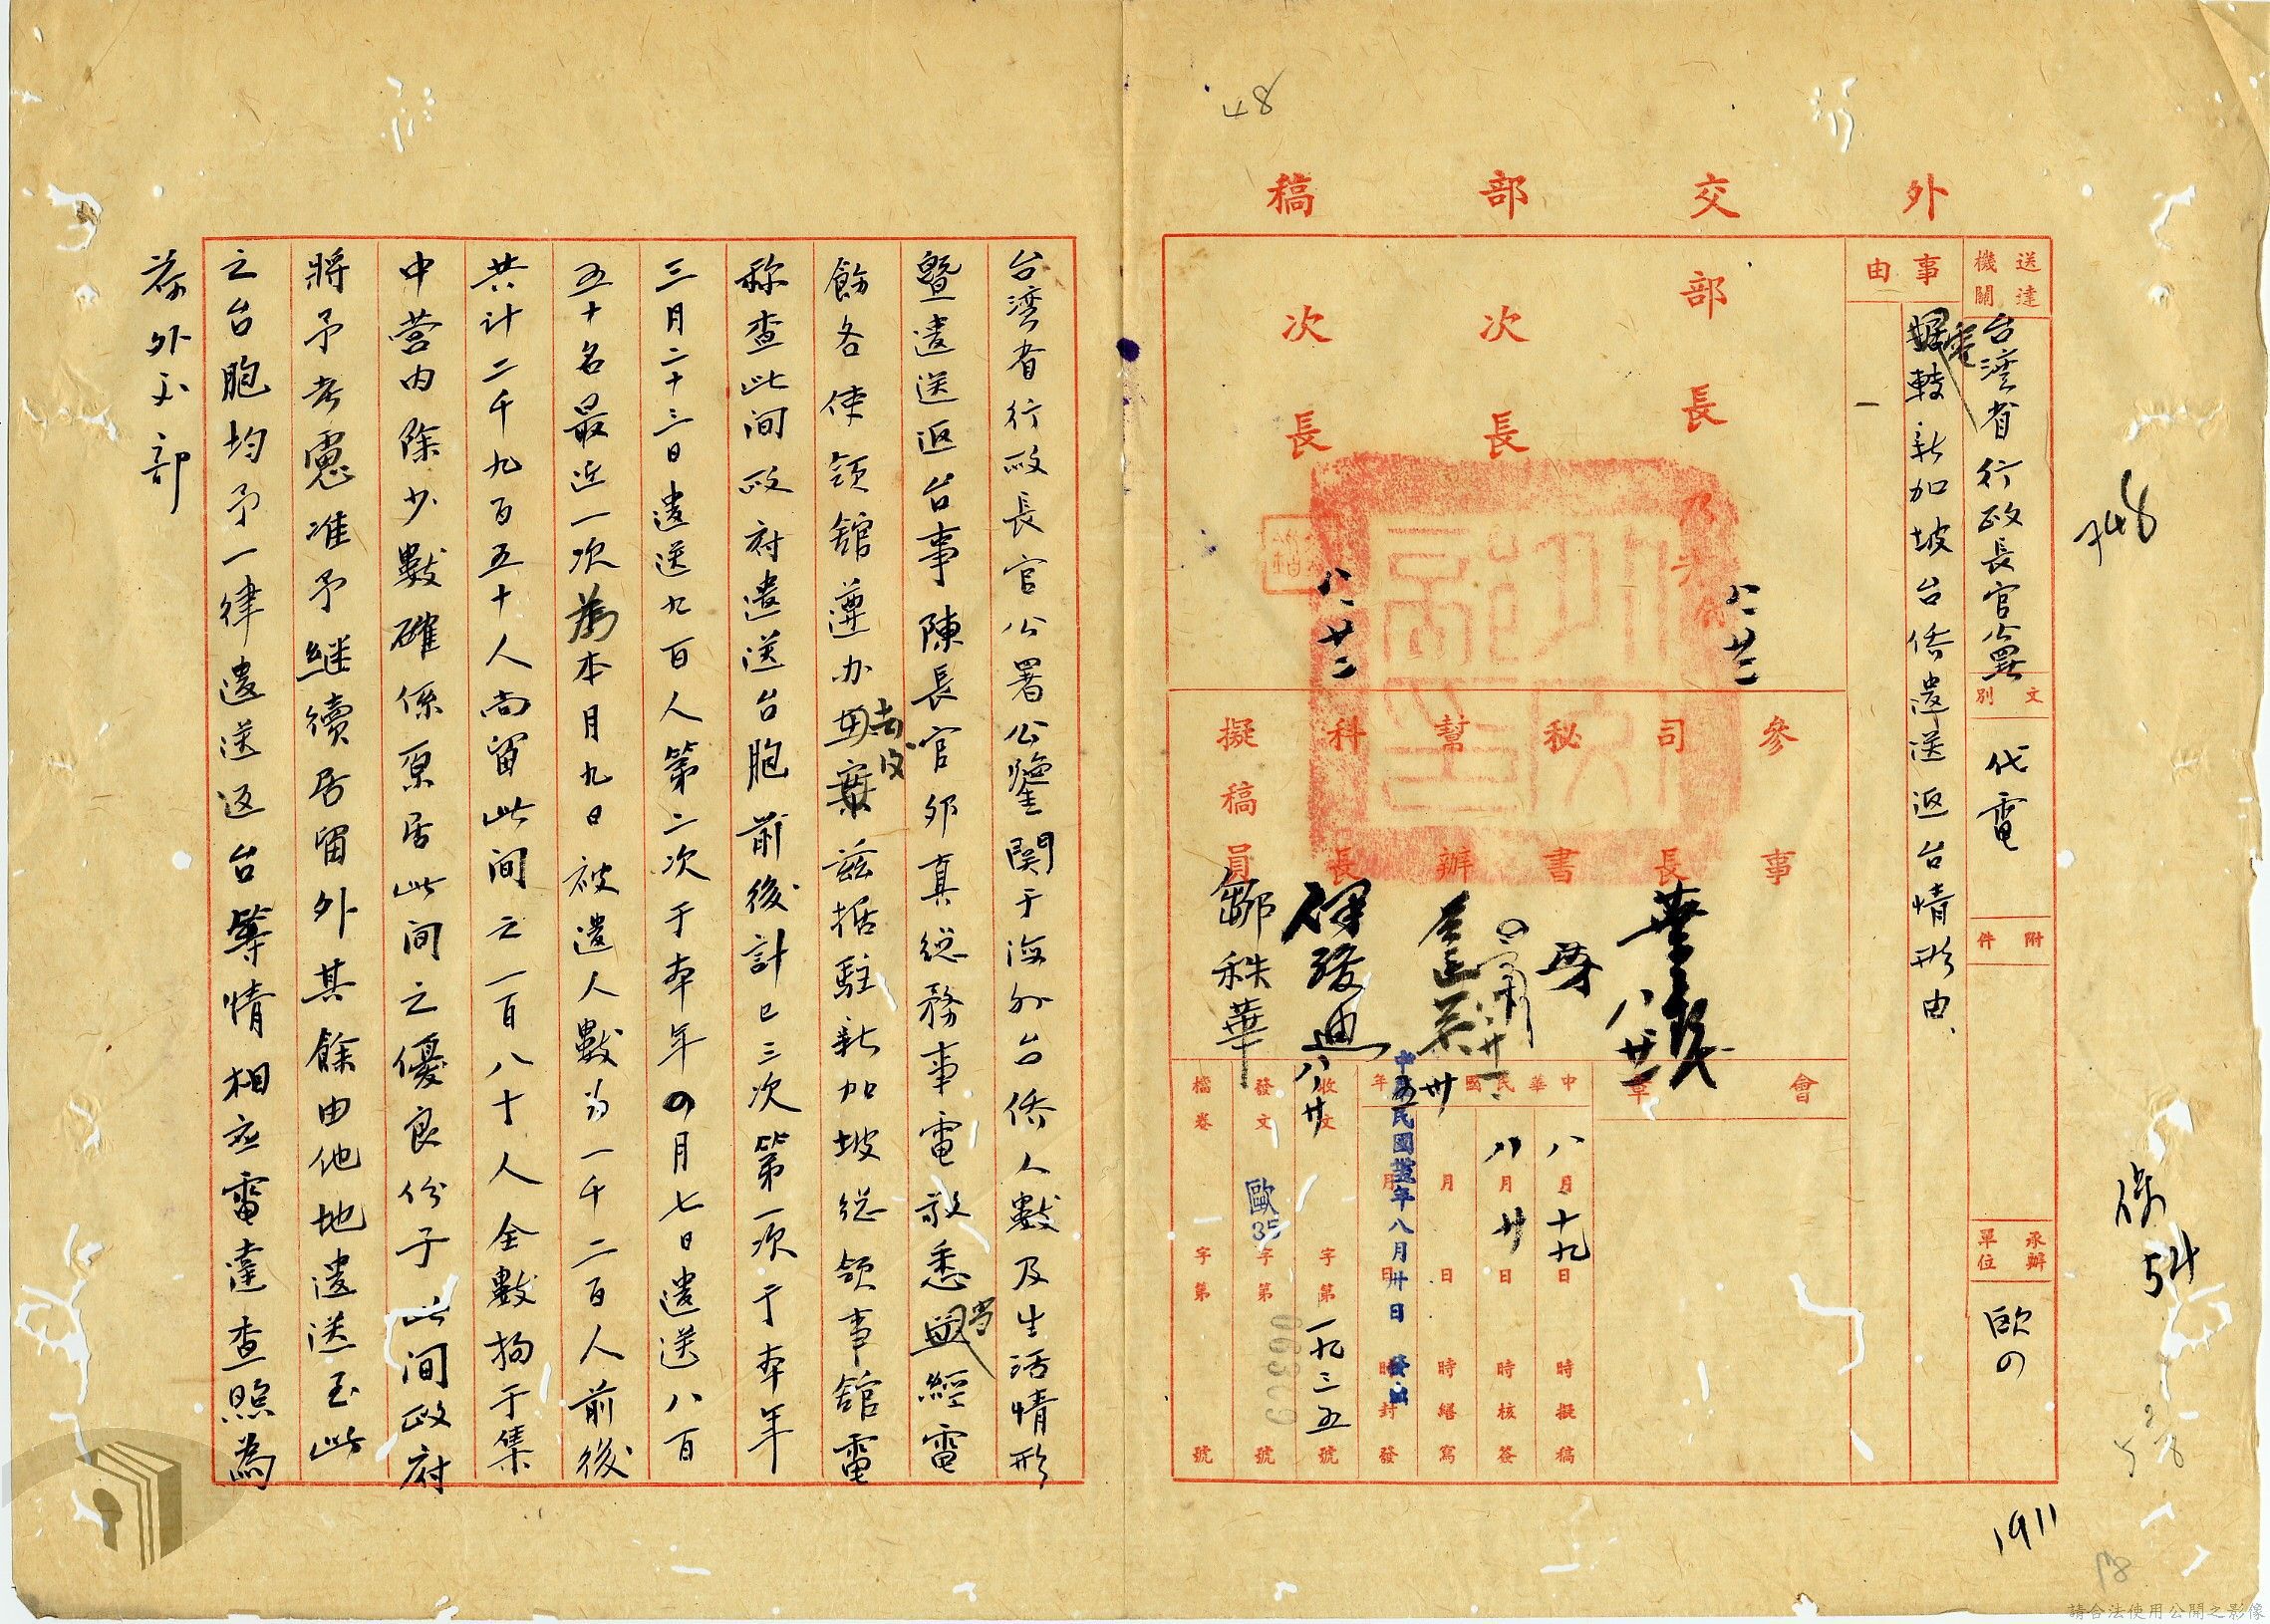 48
外交部稿
送達機關
台灣省行政長官公署
文別
代電
附件
承辦單位
歐四
事由
電轉新加坡台僑遣送返台情形由
部長
次長
次長
八 廿三
八 廿二
參事
司長
秘書
幫辦
科長
擬稿員
鄒秩華
八 廿二
八 廿
會章
中華民國 年
八月十九日 時擬稿
八月廿日 時核簽
月 日 時繕寫
月 日 時封發
中華民國卅五年八月卅日 發出
收文 字第一九三五號
發文 歐35字第 號
檔卷 字第 號
748
1911
台湾省行政長官公署公鑒関于海外台僑人數及生活情形
暨遣送返台事陳長官邜真總務事電敬悉當經電
飭各使領舘遵办尚文茲据駐新加坡總領事舘電
称查此间政府遣送台胞前後計已三次第一次于本年
三月二十三日遣送九百人第二次于本年四月七日遣送八百
五十名最近一次為本月九日被遣人數为一千二百人前後
共计二千九百五十人尚留此間之一百八十人全數拘于集
中营内除少數確係原居此间之優良份子此间政府
將予考慮准予继續居留外其餘由他地遣送至此
之台胞均予一律遣送返台等情相应電達查照為
荷外交部
請合法使用公開之影像